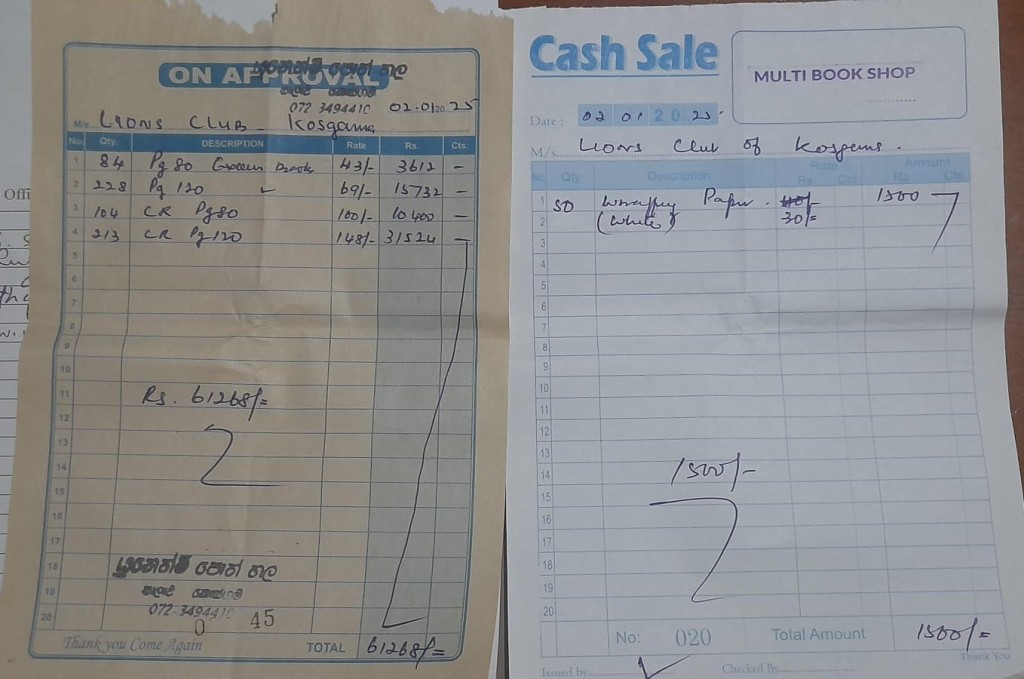 ON APPROVAL
පොත් හල
072 3494410
02.01.2025
M/s. LIONS CLUB - Kosgama
No. Qty. DESCRIPTION Rate Rs. Cts.
1 84 Pg 80 43/- 3612 -
2 228 Pg 120 69/- 15732 -
3 104 CR Pg 80 100/- 10400 -
4 213 CR Pg 120 148/- 31524 -
5
6
7
8
9
10
11 Rs. 61268/=
12
13
14
15
16
17
18 පොත් හල
19
072-3494410
20 0 45
Thank you Come Again TOTAL 61268/=
Cash Sale
MULTI BOOK SHOP
Date : 02 01 2025
M/s. Lions Club of Kosgama.
No Qty Description Rate Rs. Cts. Amount Rs. Cts.
1 50 Wrapping Paper. 40/- 1500
2 (White) 30/=
3
4
5
6
7
8
9
10
11
12
13
14 1500/-
15
16
17
18
19
20
No: 020 Total Amount 1500/=
Thank You
Issued by Checked By